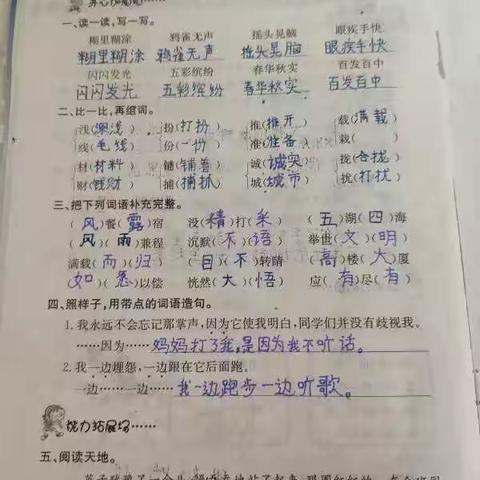 开心加油站……
一、读一读,写一写。
糊里糊涂 鸦雀无声 摇头晃脑 眼疾手快
糊里糊涂 鸦雀无声 摇头晃脑 眼疾手快
闪闪发光 五彩缤纷 春华秋实 百发百中
闪闪发光 五彩缤纷 春华秋实 百发百中
二、比一比,再组词。
浅(深浅) 扮(打扮) 推(推开) 载(满载)
线(毛线) 份( ) 准(准备) 栽( )
材(材料) 铺(铺着) 诚(诚实) 拢(合拢)
财(钱财) 捕(捕抓) 城(城市) 扰(打扰)
三、把下列词语补充完整。
(风)餐(露)宿 没(精)打(采) (五)湖(四)海
(风)(雨)兼程 沉默(不)(语) 举世(文)(明)
满载(而)(归) (目)(不)转睛 (高)楼(大)厦
(如)(愿)以偿 恍然(大)(悟) 应(有)尽(有)
四、照样子,用带点的词语造句。
1. 我永远不会忘记那掌声,因为它使我明白,同学们并没有歧视我。
……因为…… 妈妈打了我,是因为我不听话。
2. 我一边埋怨,一边跟在它后面跑。
一边……一边…… 我一边跑步一边听歌。
能力拓展场……
五、阅读天地。